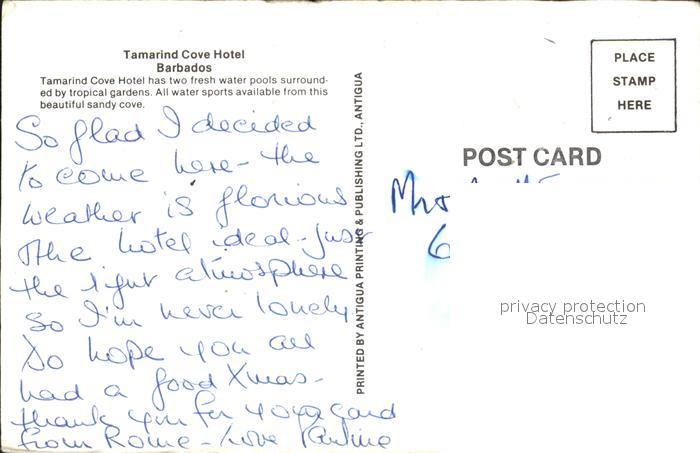 Tamarind Cove Hotel
Barbados
Tamarind Cove Hotel has two fresh water pools surround-
ed by tropical gardens. All water sports available from this
beautiful sandy cove.
So glad I decided
to come here - the
weather is glorious
The hotel ideal - just
the right atmosphere
So I'm never lonely.
Do hope you all
had a good Xmas -
thank you for your card
from Rome - Love Pauline
PRINTED BY ANTIGUA PRINTING & PUBLISHING LTD., ANTIGUA
PLACE
STAMP
HERE
POST CARD
Mrs
6
privacy protection
Datenschutz